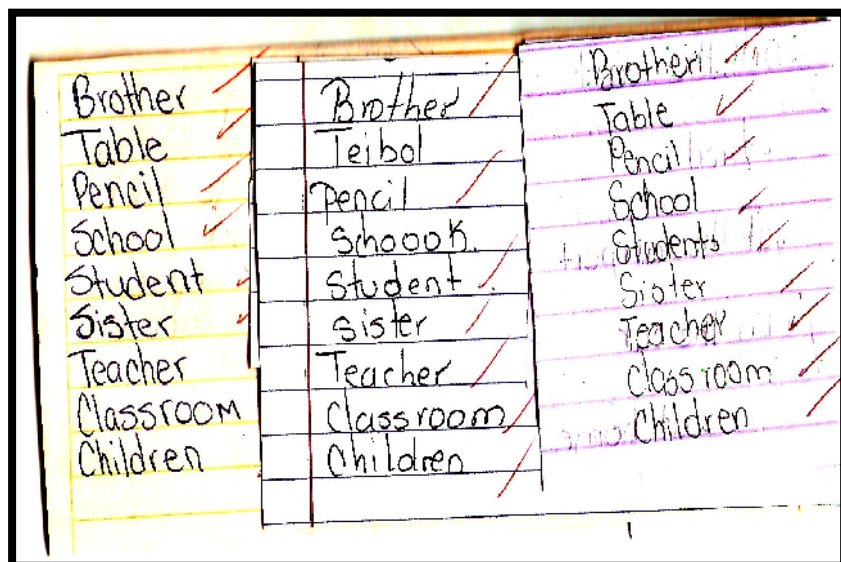 Brother
Table
Pencil
School
Student
Sister
Teacher
Classroom
Children
Brother
Teibol
Pencil
Schoook.
Student.
Sister
Teacher
Classroom
Children
Brother
Table
Pencil
School
Students
Sister
Teacher
Classroom
Children